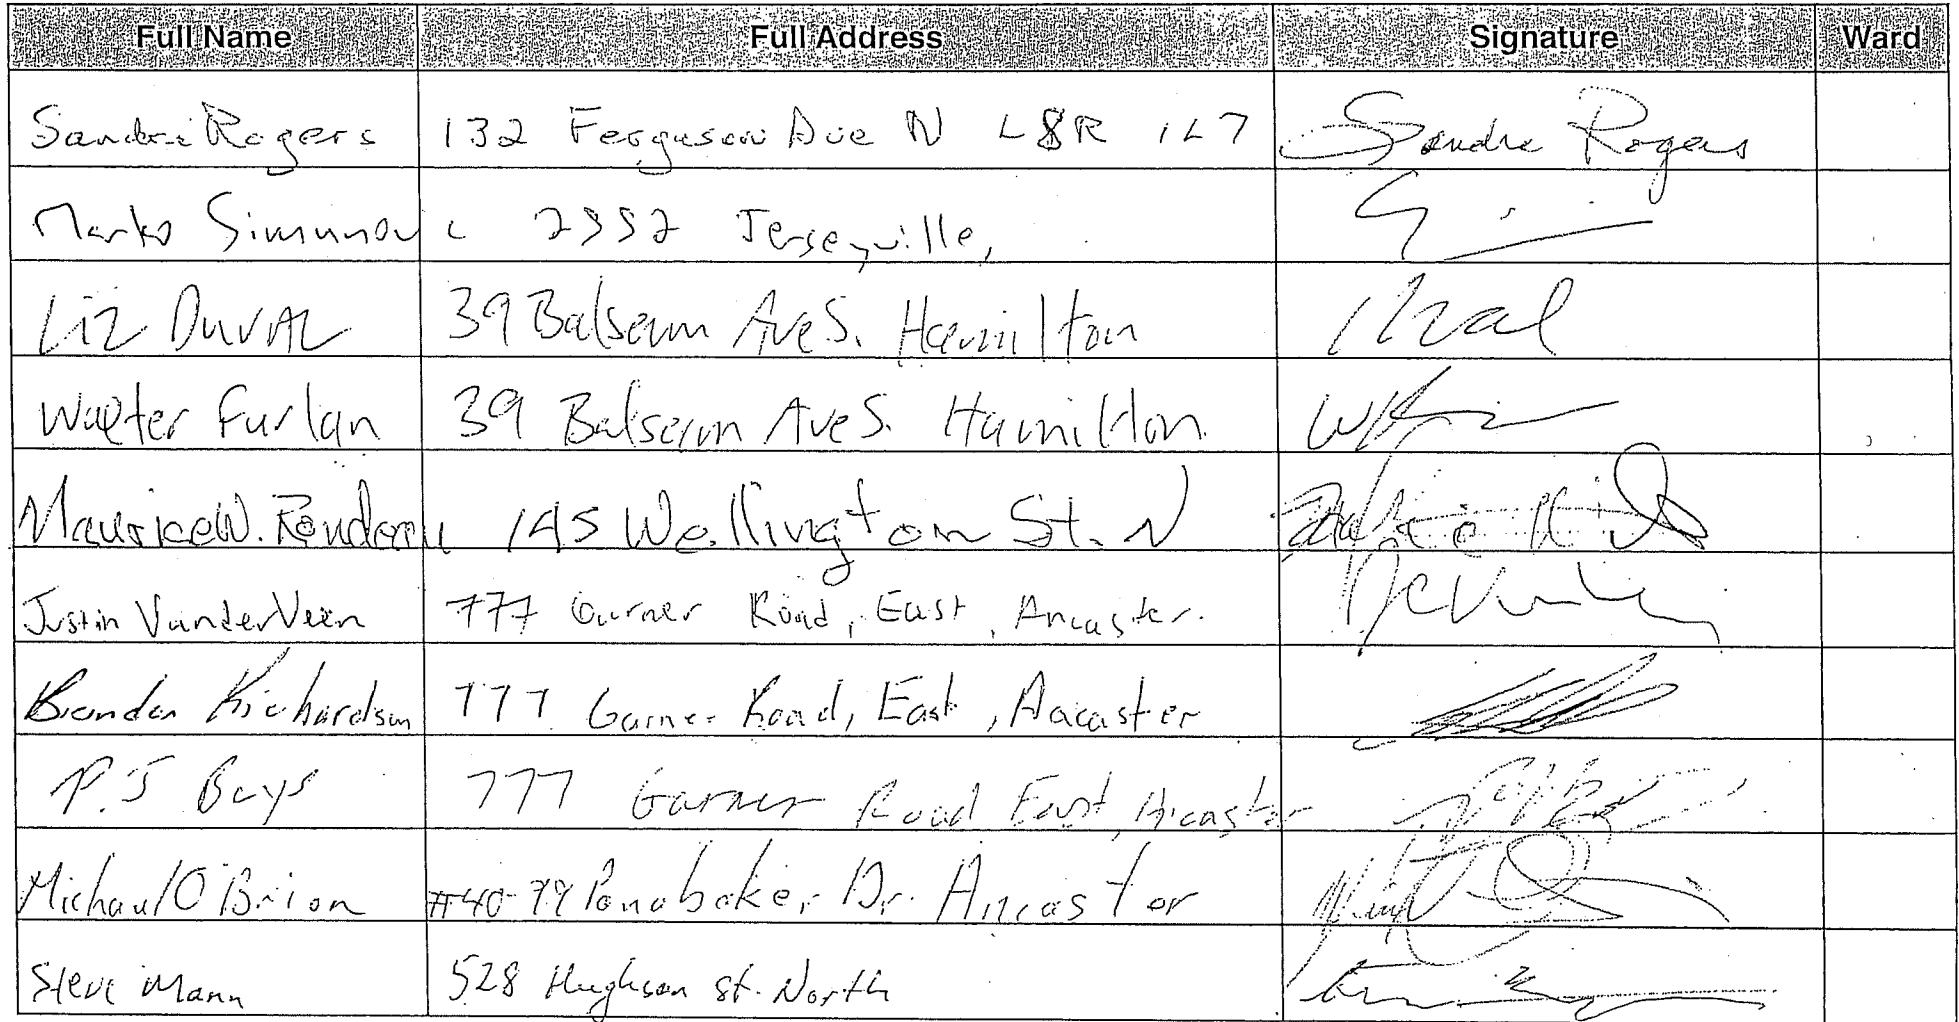 Full Name Full Address Signature Ward
Sandra Rogers 132 Ferguson Ave N L8R 1L7 Sandra Rogers
Marko Simunov c 2552 Jerseyville,
Liz Duval 39 Balsam Ave S. Hamilton
Walter Furlan 39 Balsam Ave S. Hamilton
Maurice W. Rondeau 145 Wellington St. N
Justin VanderVeen 777 Garner Road, East, Ancaster.
Brendan Richardson 777 Garner Road, East, Ancaster
P.J Buys 777 Garner Road East, Ancaster
Michael O'Brien #40-79 Panabaker Dr. Ancaster
Steve Mann 528 Hughson St. North